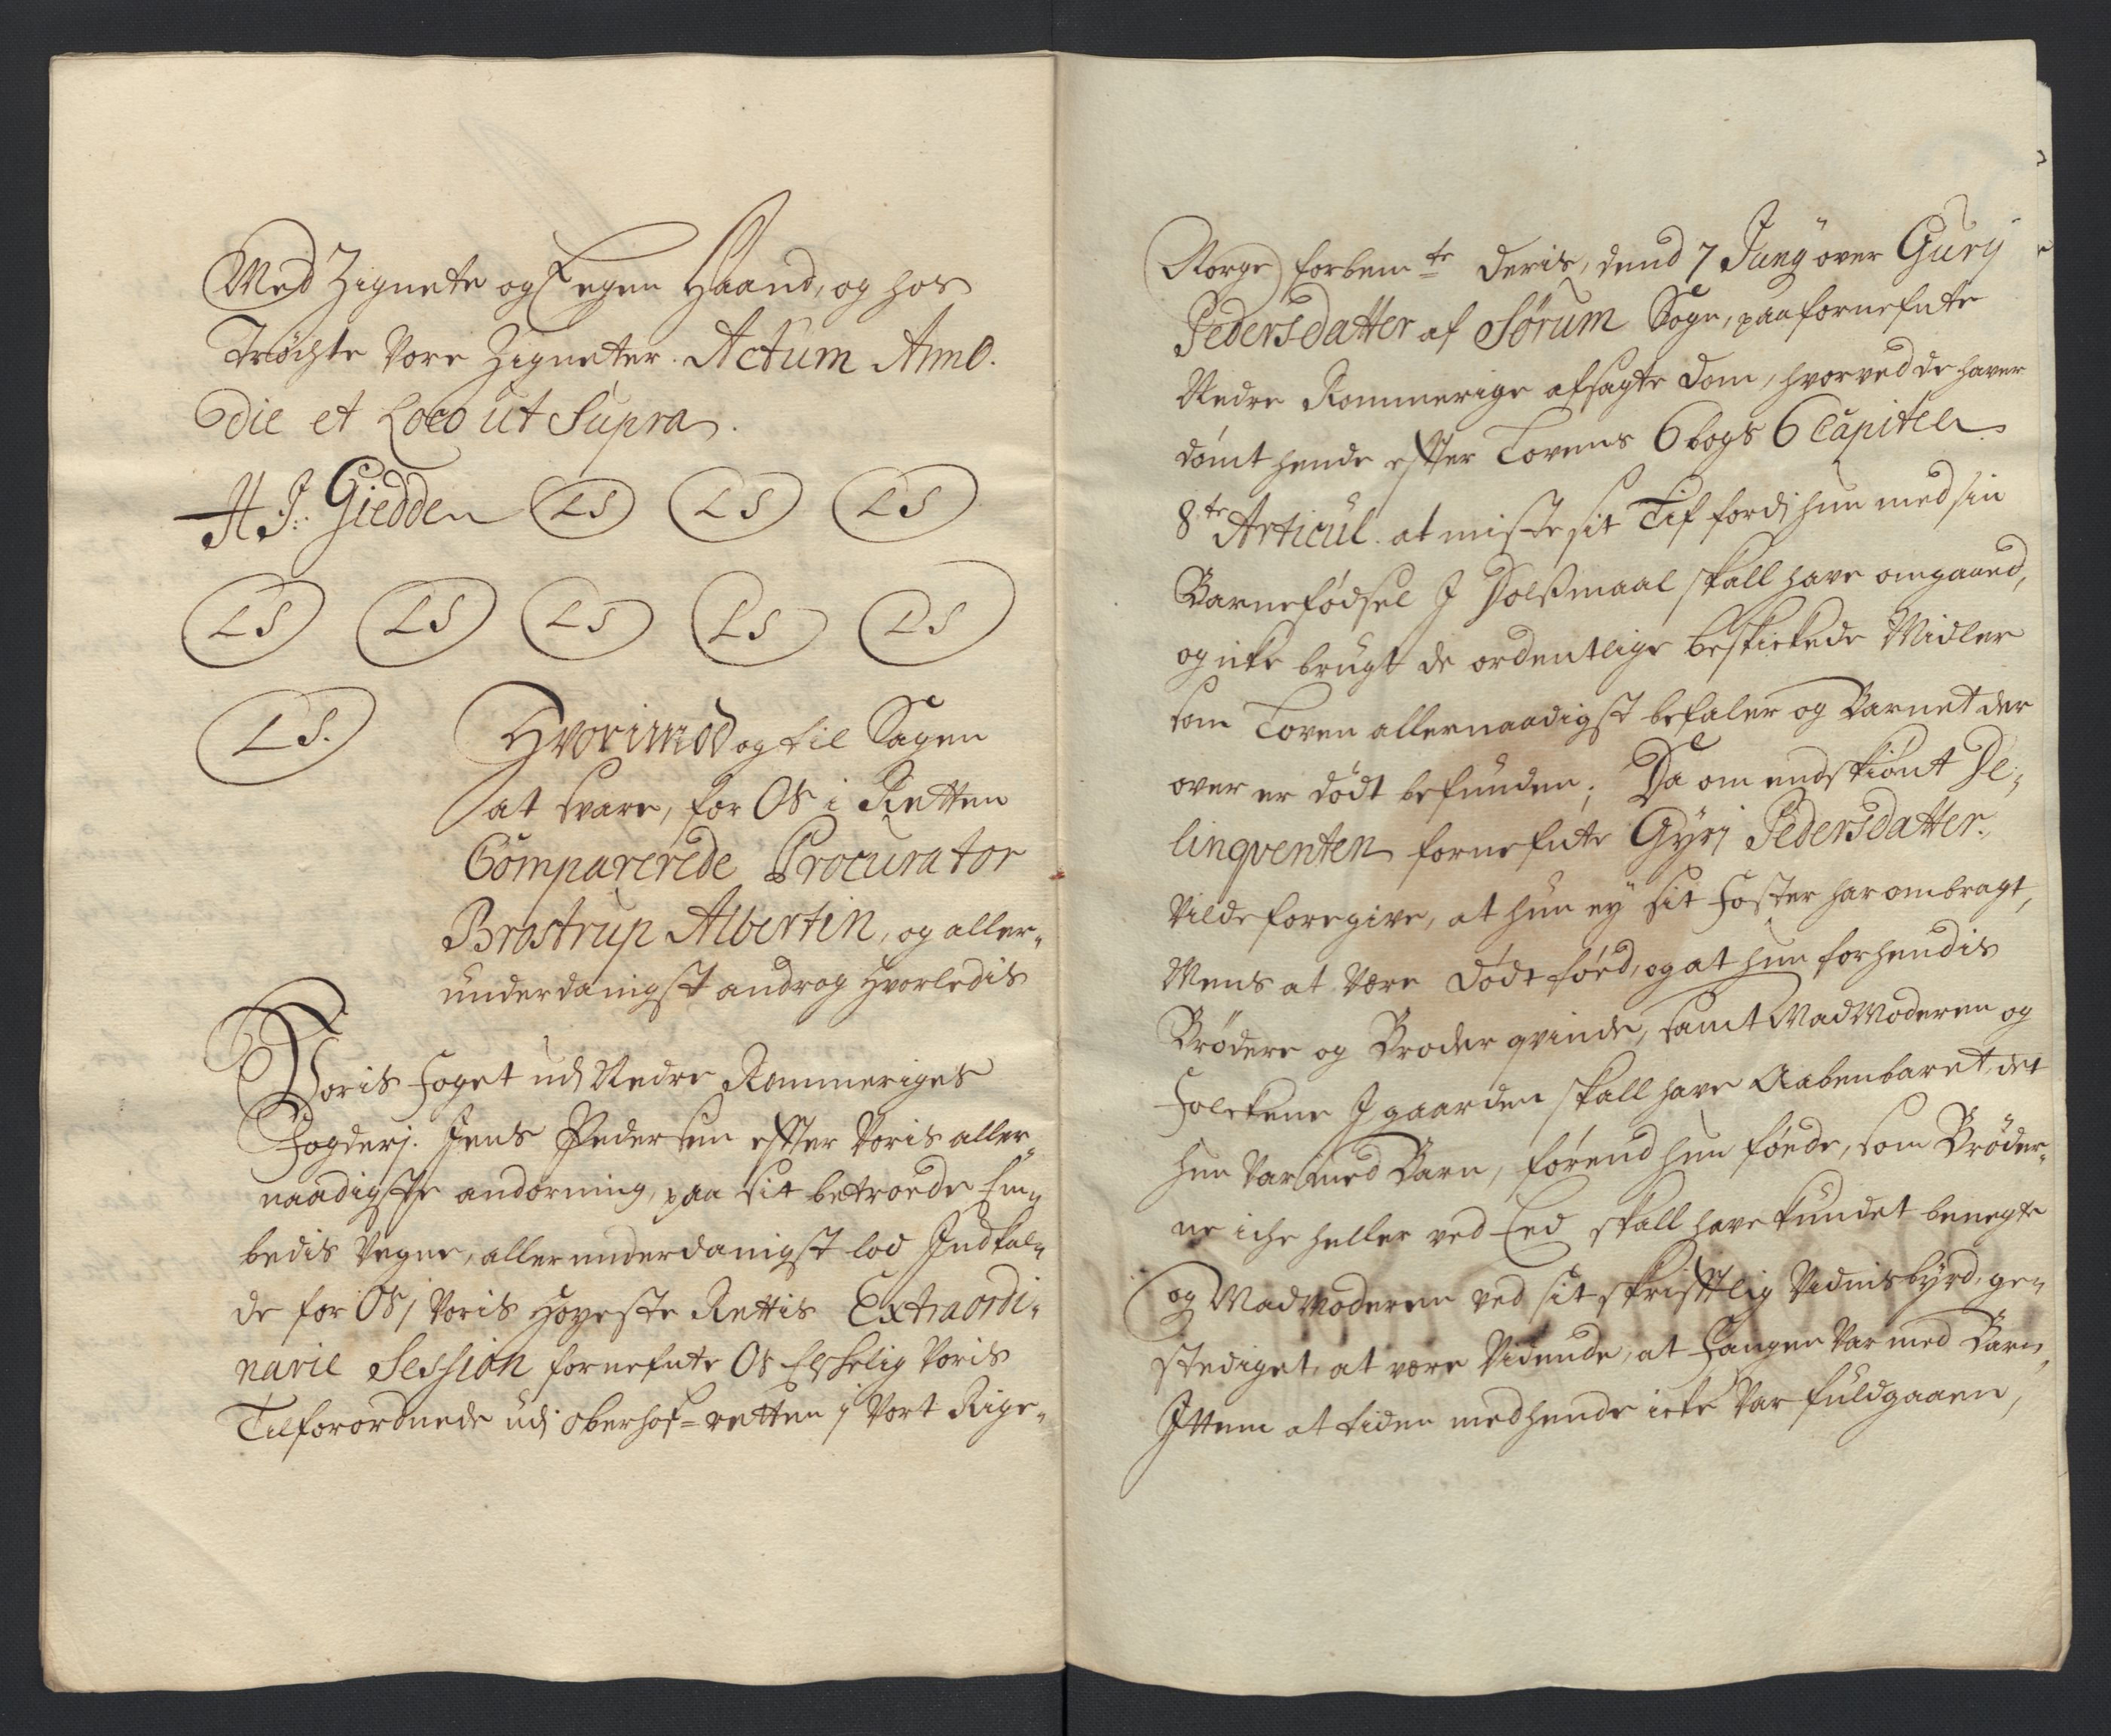 Med Zignete og Eegen Haand, og hos
Trøchte Vore Zigneter. Actum Anno.
die et Loco ut Supra.
H J: Giedden LS LS LS
LS LS LS LS LS
LS.
Hvorimod og til Sagen
at svare, for Os i Retten
Comparerede Procurator
Brostrup Albertin, og aller-
underdanigst androg hvorledis
Voris Foget udj Nedre Rommeriges
Fogderj. Jens Pedersen effter Voris aller-
naadigste andorning, paa sit betroede Em-
bedis Vegne, allerunderdanigst lod Indkal-
de for Os i Voris Høyeste Rettis Extraordi-
narie Session fornefnte Os Elskelig Voris
Tilforordnede udj Oberhof-retten i Vort Rige-
Norge forbemte Deris, dend 7 Junÿ over Gurÿ
Pedersdatter af Sørum Sogn, paa fornefnte
Nedre Rommerige afsagte Dom, hvorved de haver
dømt hende effter Lovens 6 bogs 6 Capitel
8te Articul. at miste sit Lif fordj hun med sin
Barnefødsel J Dolßmaal skall have omgaaed,
og icke brugt de ordentlige beskickede Midler
som Loven allernaadigst befaler og Barnet der
over er dødt befunden; Da om endskiønt De-
linqventen fornefnte Gyrj Pedersdatter.
Vilde foregive, at hun eÿ sit Foster har ombragt,
Mens at Være Dødt føed, og at hun for hendis
Brødere og Broder qvinde, samt Madmoderen og
Folckene J gaarden skall have Aabenbaret, det
hun Var med Barn, førend hun føede, som Brøder-
ne iche heller ved Eed skall have kundet benegte
og Madmoderen ved sit skrifftlig Vidnisbÿrd, ge-
stediget, at være Vidende, at Fangen Var med Barn,
Jttem at tiden med hende icke Var fuldgaaen,